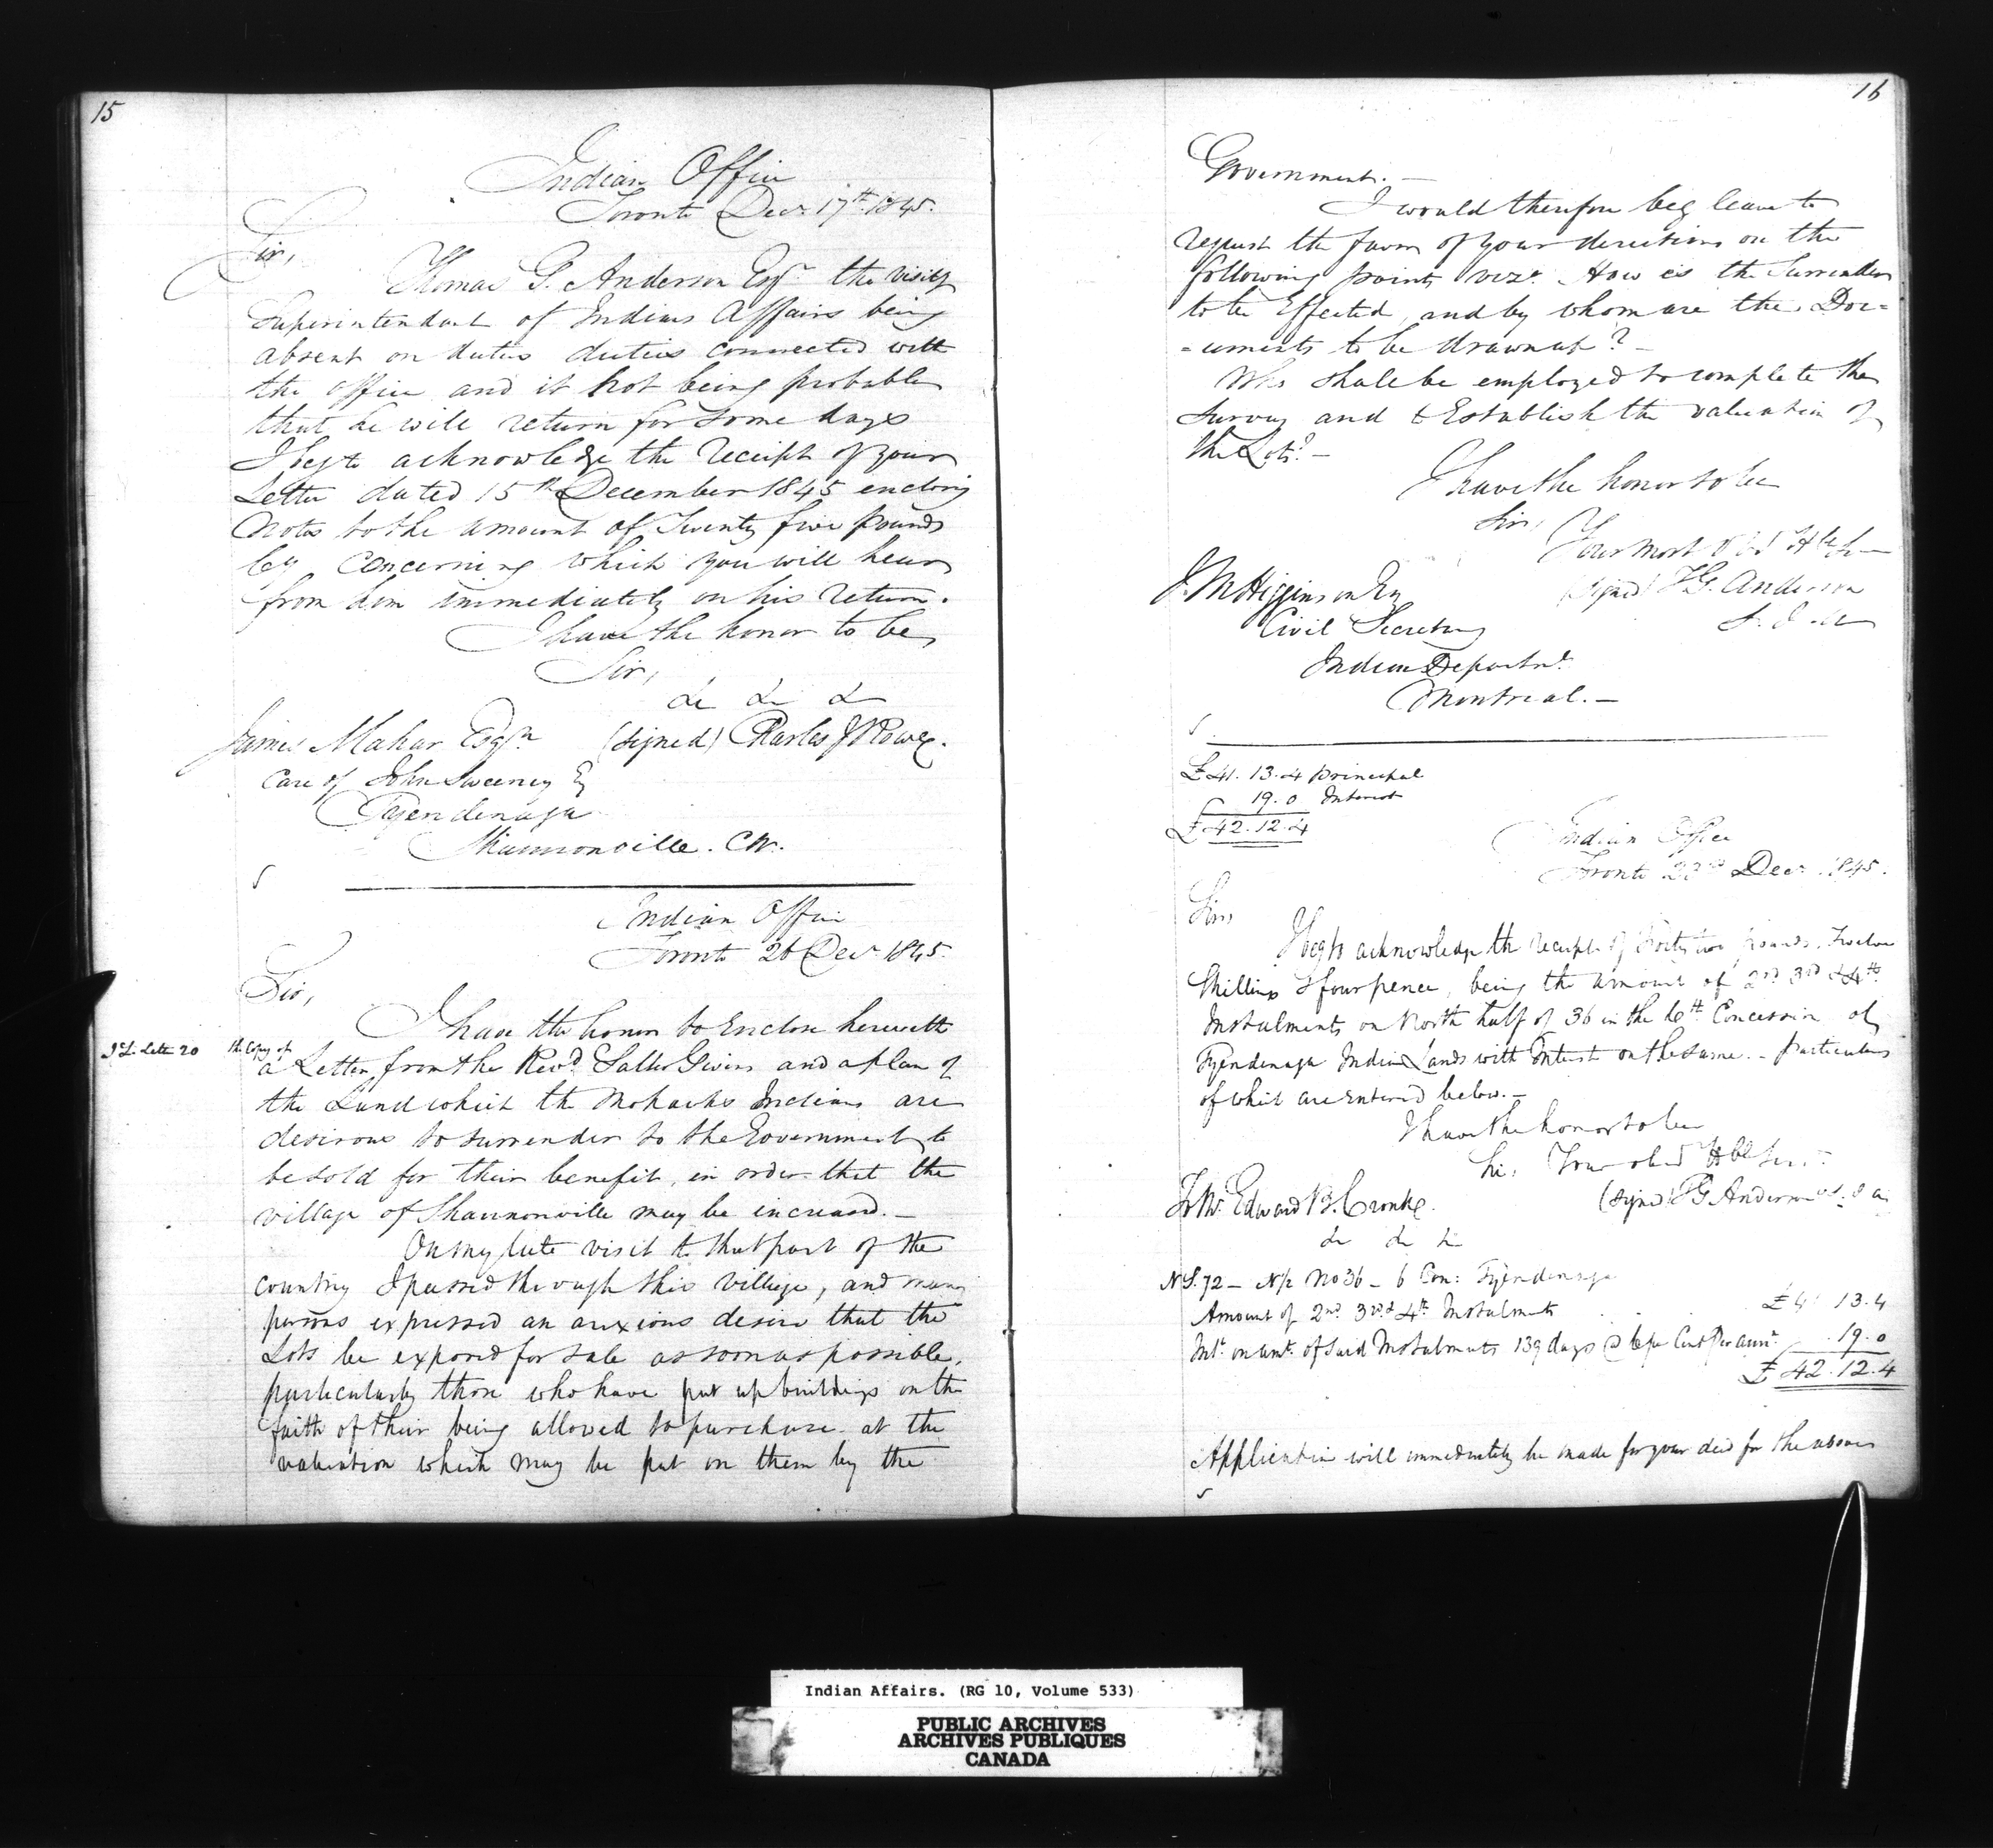 15
Indian Office
Toronto Decr. 17th 1845.
Sir,
Thomas G. Anderson Esqr. the visitg
Superintendant of Indian Affairs being
absent on duties duties connected with
the office and it not being probable
that he will return for some days
I beg to acknowledge the receipt of your
Letter dated 15th December 1845 enclosing
Notes to the amount of Twenty five pounds
Cy concerning which you will hear
from him immediately on his return.
I have the honor to be,
Sir,
&c &c &
James Mahar Esqr (signed) Charles
Care of John Sweeney Eq
Tyendenaga
Shannonville. CW.
Indian Office
Toronto 26 Decr 1845.
Sir,
I have the honor to Enclose herewith
Letter 20 the Copy of
a Letter from the Revd. Salter Givins and a plan of
the Land which the Mohawks Indians are
desirous to surrender to the Government to
be sold for their benefit, in order that the
village of Shannonville may be increased. —
On my late visit to that part of the
country I passed through this Village, and many
persons expressed an anxious desire that the
Lots be exposed for sale as soon as possible,
particularly those who have put up buildings on the
faith of their being allowed to purchase at the
valuation which may be put on them by the
16
Government. —
I would therefore beg leave to
request the favor of your directions on the
following points vizt. How is the Surrender
to be Effected, and by whom are the Doc=
=uments to be drawn up? —
Who shall be employed to complete the
Survey and to Establish the valuation of
the Lots? —
I have the honor to be
Sir,
Your most Obt Hble St
J. M Higginson Eq (signed) T G. Anderson
Civil Secretary S. I. A
Indian Departmt.
Montreal. —
£41. 13. 4 principal
19. 0 Interest
£42. 12. 4
Indian Office
Toronto 23rd Decr. 1845.
Sir
I beg to acknowledge the receipt of Forty two pounds, Twelve
Shillings & four pence, being the amount of 2nd 3rd & 4th
Instalments on North half of 36 in the 6th Concession of
Tyendenaga Indian Lands with Interest on the same. — particulars
of which are entered below. —
I have the honor to be
Sir, Your obed Hbl Sert
To Mr. Edward B. Cronke. (signed) T G Anderson S. I A
&c &c &c
N S. 72 — N½ No 36 — 6 Con: Tyendenaga
Amount of 2nd 3rd & 4th Instalments £4 13. 4
Int. on amt. of said Instalments 139 days @ 6 per Cent Per annm. 19. 0
£42. 12. 4
Application will immediately be made for your deed for the above
Indian Affairs. (RG 10, Volume 533)
PUBLIC ARCHIVES
ARCHIVES PUBLIQUES
CANADA